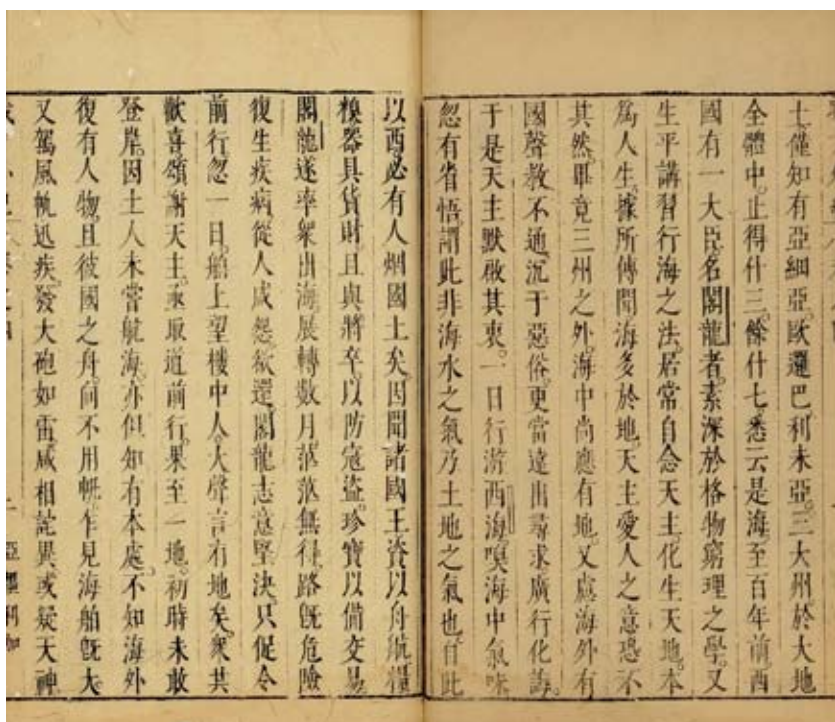 士僅知有亞細亞。歐邏巴。利未亞。三大州。於大地
全體中。止得什三。餘什七。悉云是海。至百年前。西
國有一大臣。名閣龍者。素深於格物窮理之學。又
生平講習行海之法。居常自念天主。化生天地。本
爲人生。據所傳聞海多於地。天主愛人之意恐不
其然。畢竟三州之外。海中尚應有地。又慮海外有
國聲教不通。沉于惡俗。更當遠出尋求廣行化誨。
于是天主默啟其衷。一日行游西海。嗅海中氣味
忽有省悟。謂此非海水之氣乃土地之氣也。自此
以西。必有人烟國土矣。因聞諸國王資以舟航糧
糗器具貨財。且與將卒。以防寇盜。珍寶以備交易。
閣龍遂率衆出海。展轉數月。茫茫無得。路既危險
復生疾病。從人咸怨。欲還。閣龍志意堅決。只促令
前行。忽一日。舶上望樓中人。大聲言有地矣。衆共
歡喜頌謝天主。亟取道前行。果至一地。初時未敢
登岸。因土人未嘗航海。亦但知有本處。不知海外
復有人物。且彼國之舟向不用帆。乍見海舶既大
又駕風帆迅疾。發大砲如雷。咸相詫異。或疑天神
亞墨利加